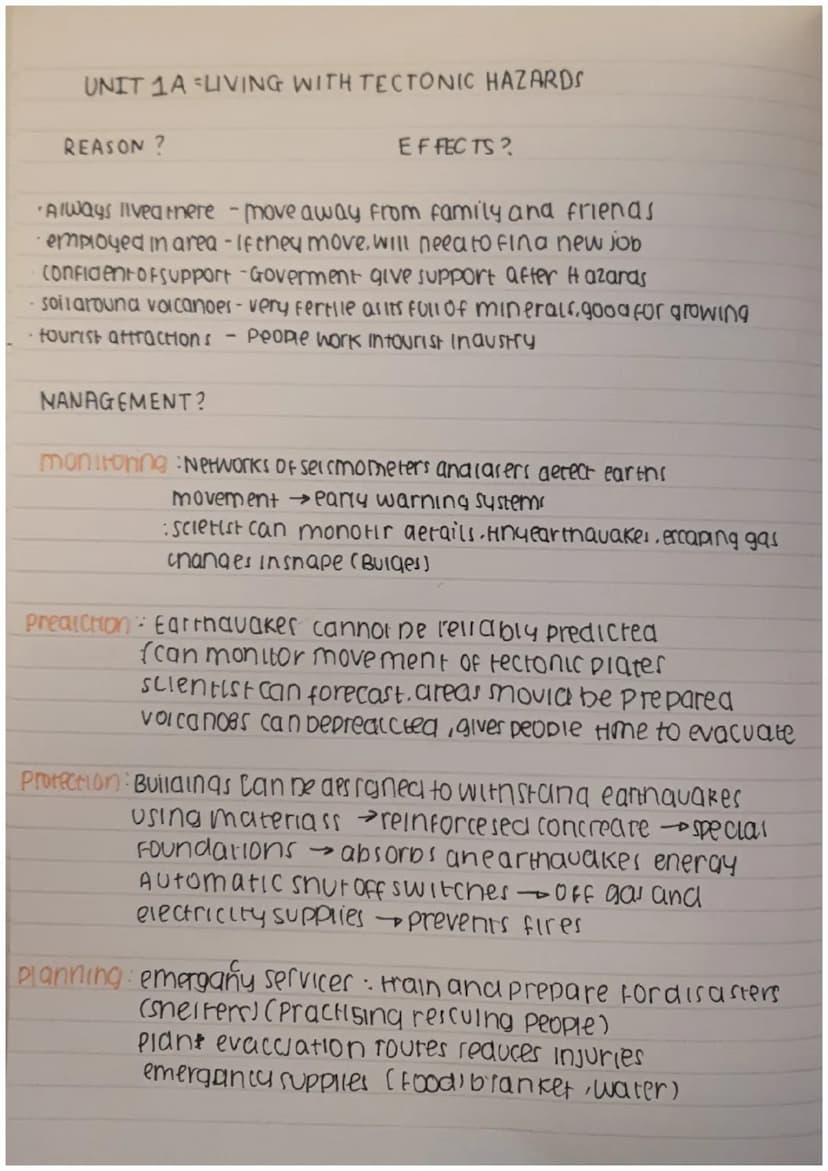 UNIT 1A = LIVING WITH TECTONIC HAZARDS
REASON ? EFFECTS ?
· Always lived there - move away from family and friends
· employed in area - if they move, will need to find new job
confident of support - Goverment give support after Hazards
· soil around volcanoes - very fertile as its full of minerals, good for growing
· tourist attractions - people work in tourist industry
MANAGEMENT ?
monitoring : Networks of seismometers and lasers detect earths
movement → early warning systems
: scietist can monotir details, tiny earthquakes, escaping gas
changes in shape (Bulges)
prediction : Earthquakes cannot be reliably predicted
(can monitor movement of tectonic plates
scientist can forecast, areas should be prepared
volcanoes can be predicted, gives people time to evacuate
protection : Buildings can be designed to withstand earthquakes
using materials → reinforcesed concreate → special
foundations → absorbs an earthquakes energy
Automatic shut off switches → off gas and
electricity supplies → prevents fires
planning : emergancy services : train and prepare for disasters
(shelters) (Practising rescuing people)
plant evacciation routes reduces injuries
emergancy supplies (food) blanket, water)